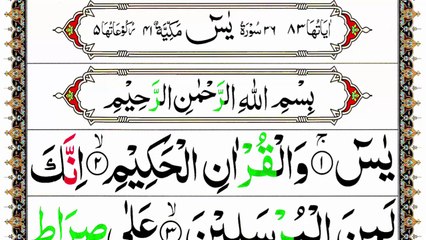 اٰيَاتُهَا ٨٣ ٣٦ سُوْرَةُ يٰسٓ مَكِّيَّةٌ ٤١ رُكُوْعَاتُهَا ٥
بِسْمِ اللّٰهِ الرَّحْمٰنِ الرَّحِيْمِ
يٰسٓ ۚ ﴿١﴾ وَالْقُرْاٰنِ الْحَكِيْمِ ۙ ﴿٢﴾ اِنَّكَ
لَمِنَ الْمُرْسَلِيْنَ ۙ ﴿٣﴾ عَلٰى صِرَاطٍ